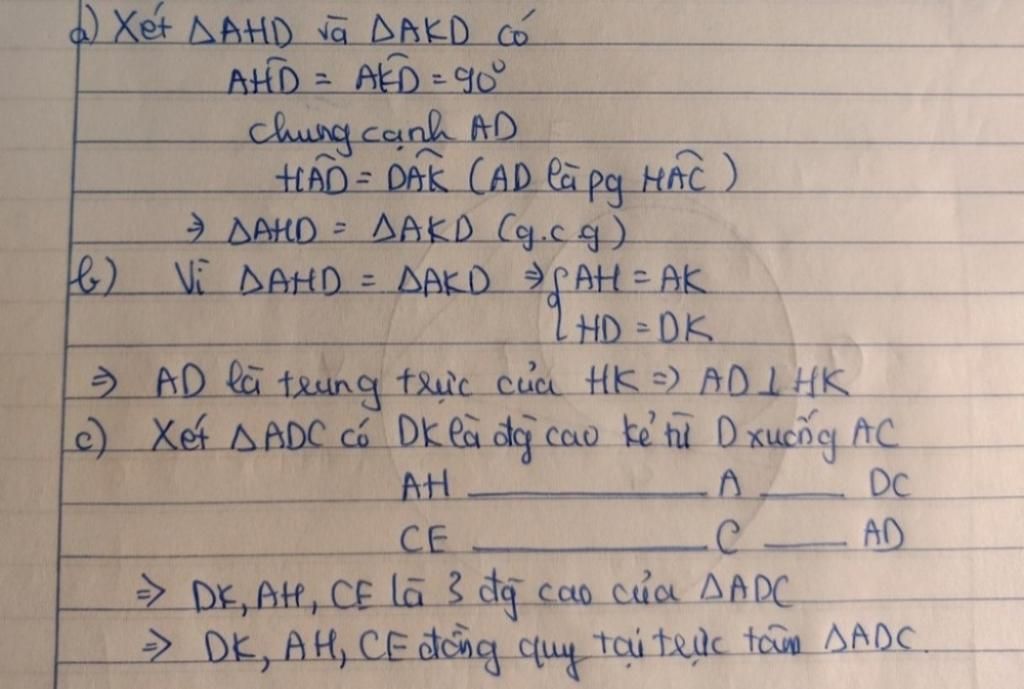 a) Xét ΔAHD và ΔAKD có
AĤD = AK̂D = 90°
chung cạnh AD
HÂD = DÂK (AD là pg HÂC)
⇒ ΔAHD = ΔAKD (g.c.g)
b) Vì ΔAHD = ΔAKD ⇒ { AH = AK
HD = DK
⇒ AD là trung trực của HK => AD ⊥ HK
c) Xét ΔADC có DK là đg cao kẻ từ D xuống AC
AH ———— A ——— DC
CE ———— C ——— AD
⇒ DK, AH, CE là 3 đg cao của ΔADC
⇒ DK, AH, CE đồng quy tại trực tâm ΔADC.